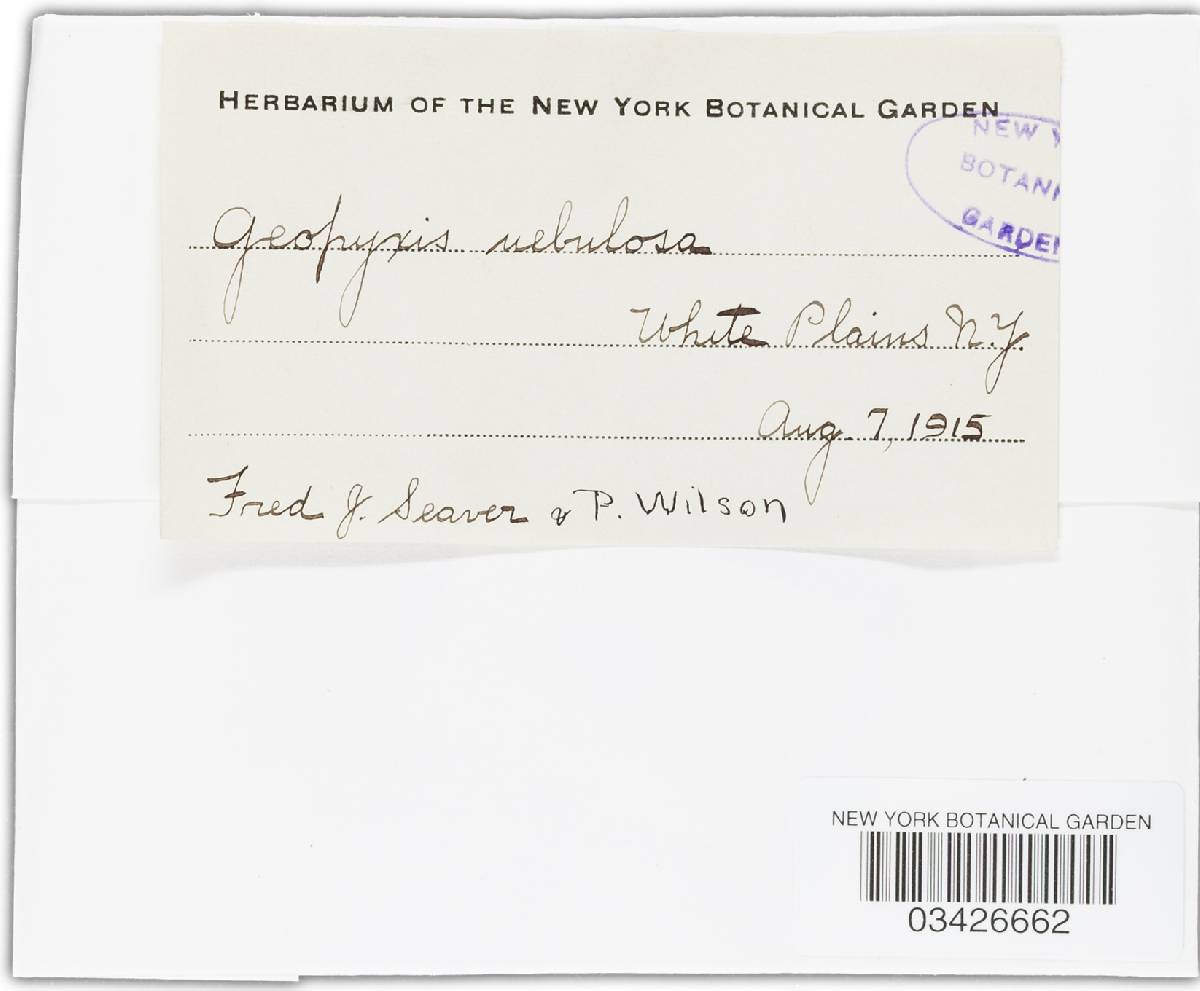 HERBARIUM OF THE NEW YORK BOTANICAL GARDEN
NEW Y
BOTANI
GARDEN
Geopyxis nebulosa
White Plains N.Y.
Aug. 7, 1915
Fred J. Seaver & P. Wilson
NEW YORK BOTANICAL GARDEN
03426662